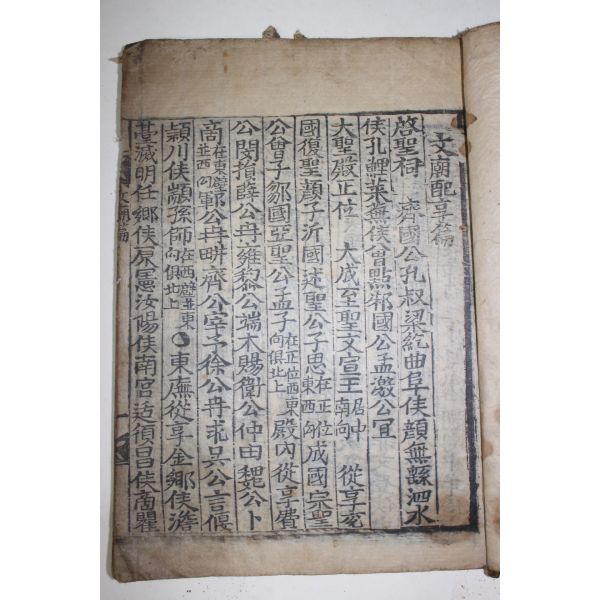 文廟配享篇
啓聖祠 齊國公孔叔梁紇曲阜侯顔無繇泗水
侯孔鯉萊蕪侯曾點邾國公孟激公宜
大聖殿正位 大成至聖文宣王居中南向 從享兗
國復聖顔子沂國述聖公子思在正位東西向成國宗聖
公曾子鄒國亞聖公孟子在正位西東向俱北上殿內從享費
公閔損薛公冉雍黎公端木賜衛公仲由魏公卜
商在東壁並西向鄆公冉耕齊公宰予徐公冉求吳公言偃
潁川侯顓孫師在西壁並東向俱北上 東廡從享金鄕侯澹
臺滅明任鄕侯原憲汝陽侯南宮适須昌侯商瞿
文廟篇